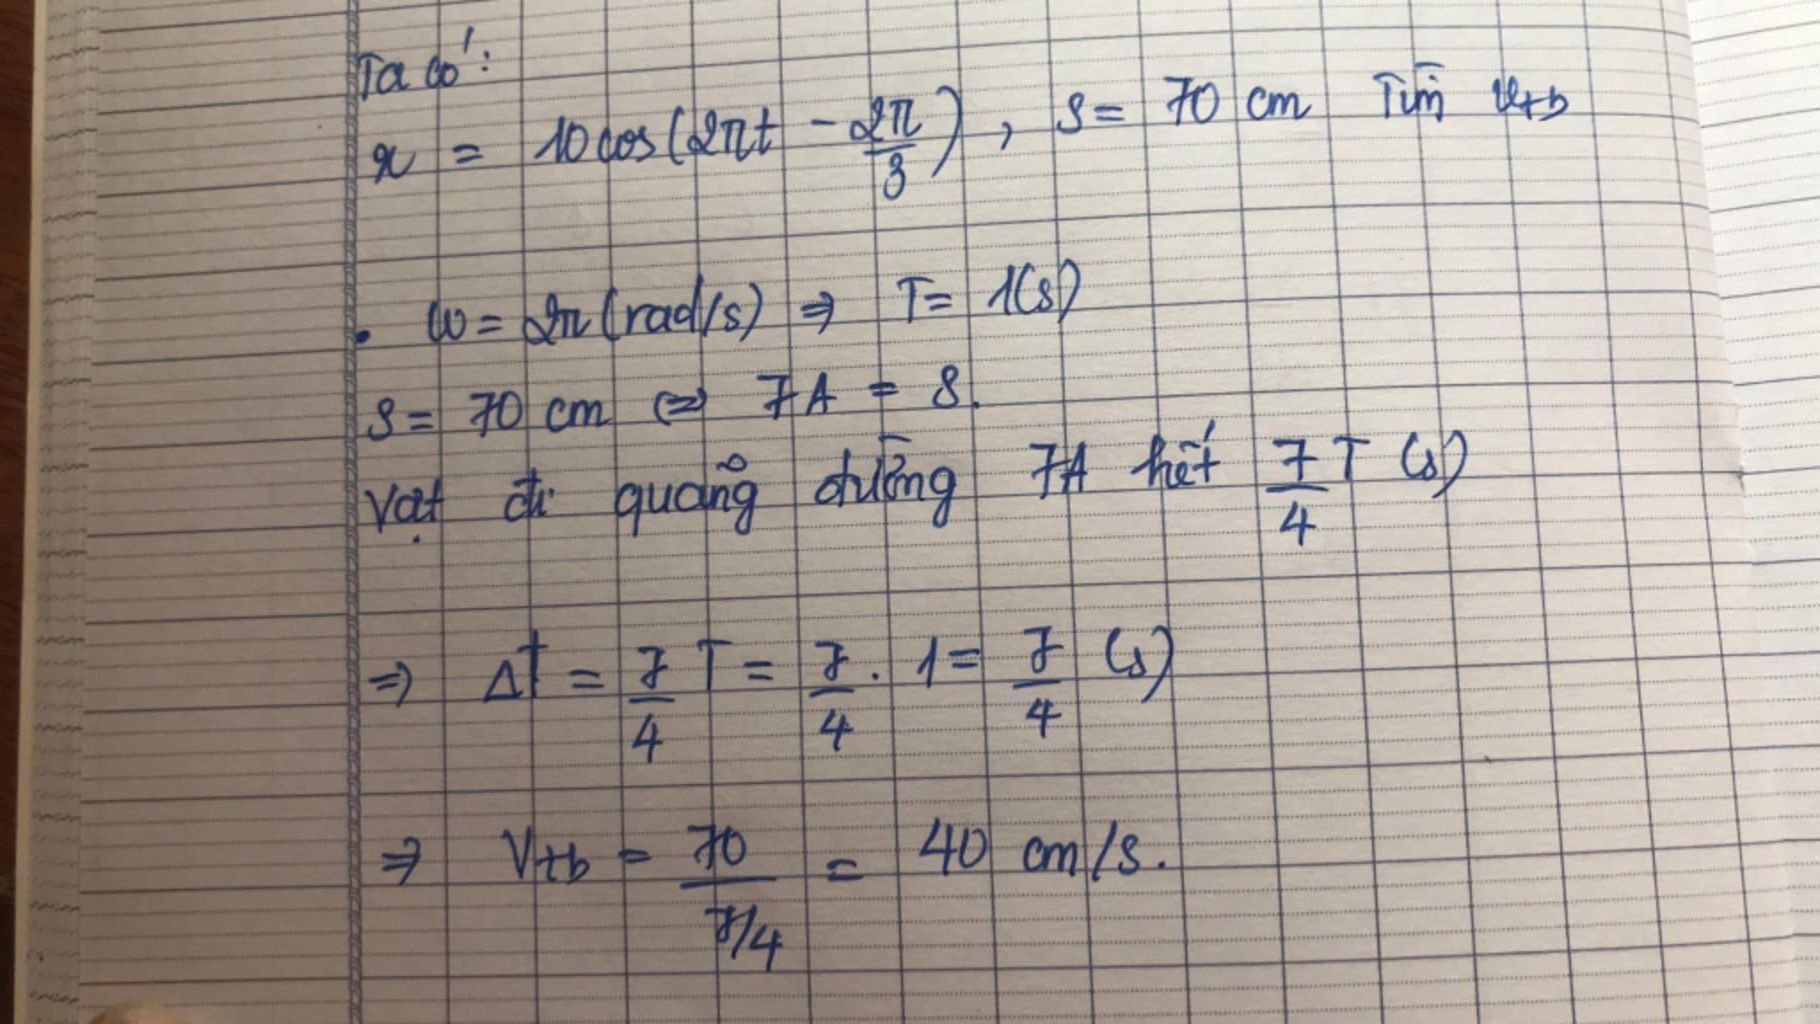 Ta có:
x = 10cos(2πt - 2π/3), S = 70 cm Tìm vtb
• ω = 2π(rad/s) ⇒ T = 1(s)
S = 70 cm ⇔ 7A = S.
Vật đi quãng đường 7A hết 7/4 T (s)
⇒ Δt = 7/4 T = 7/4 . 1 = 7/4 (s)
⇒ Vtb = 70/(7/4) = 40 cm/s.